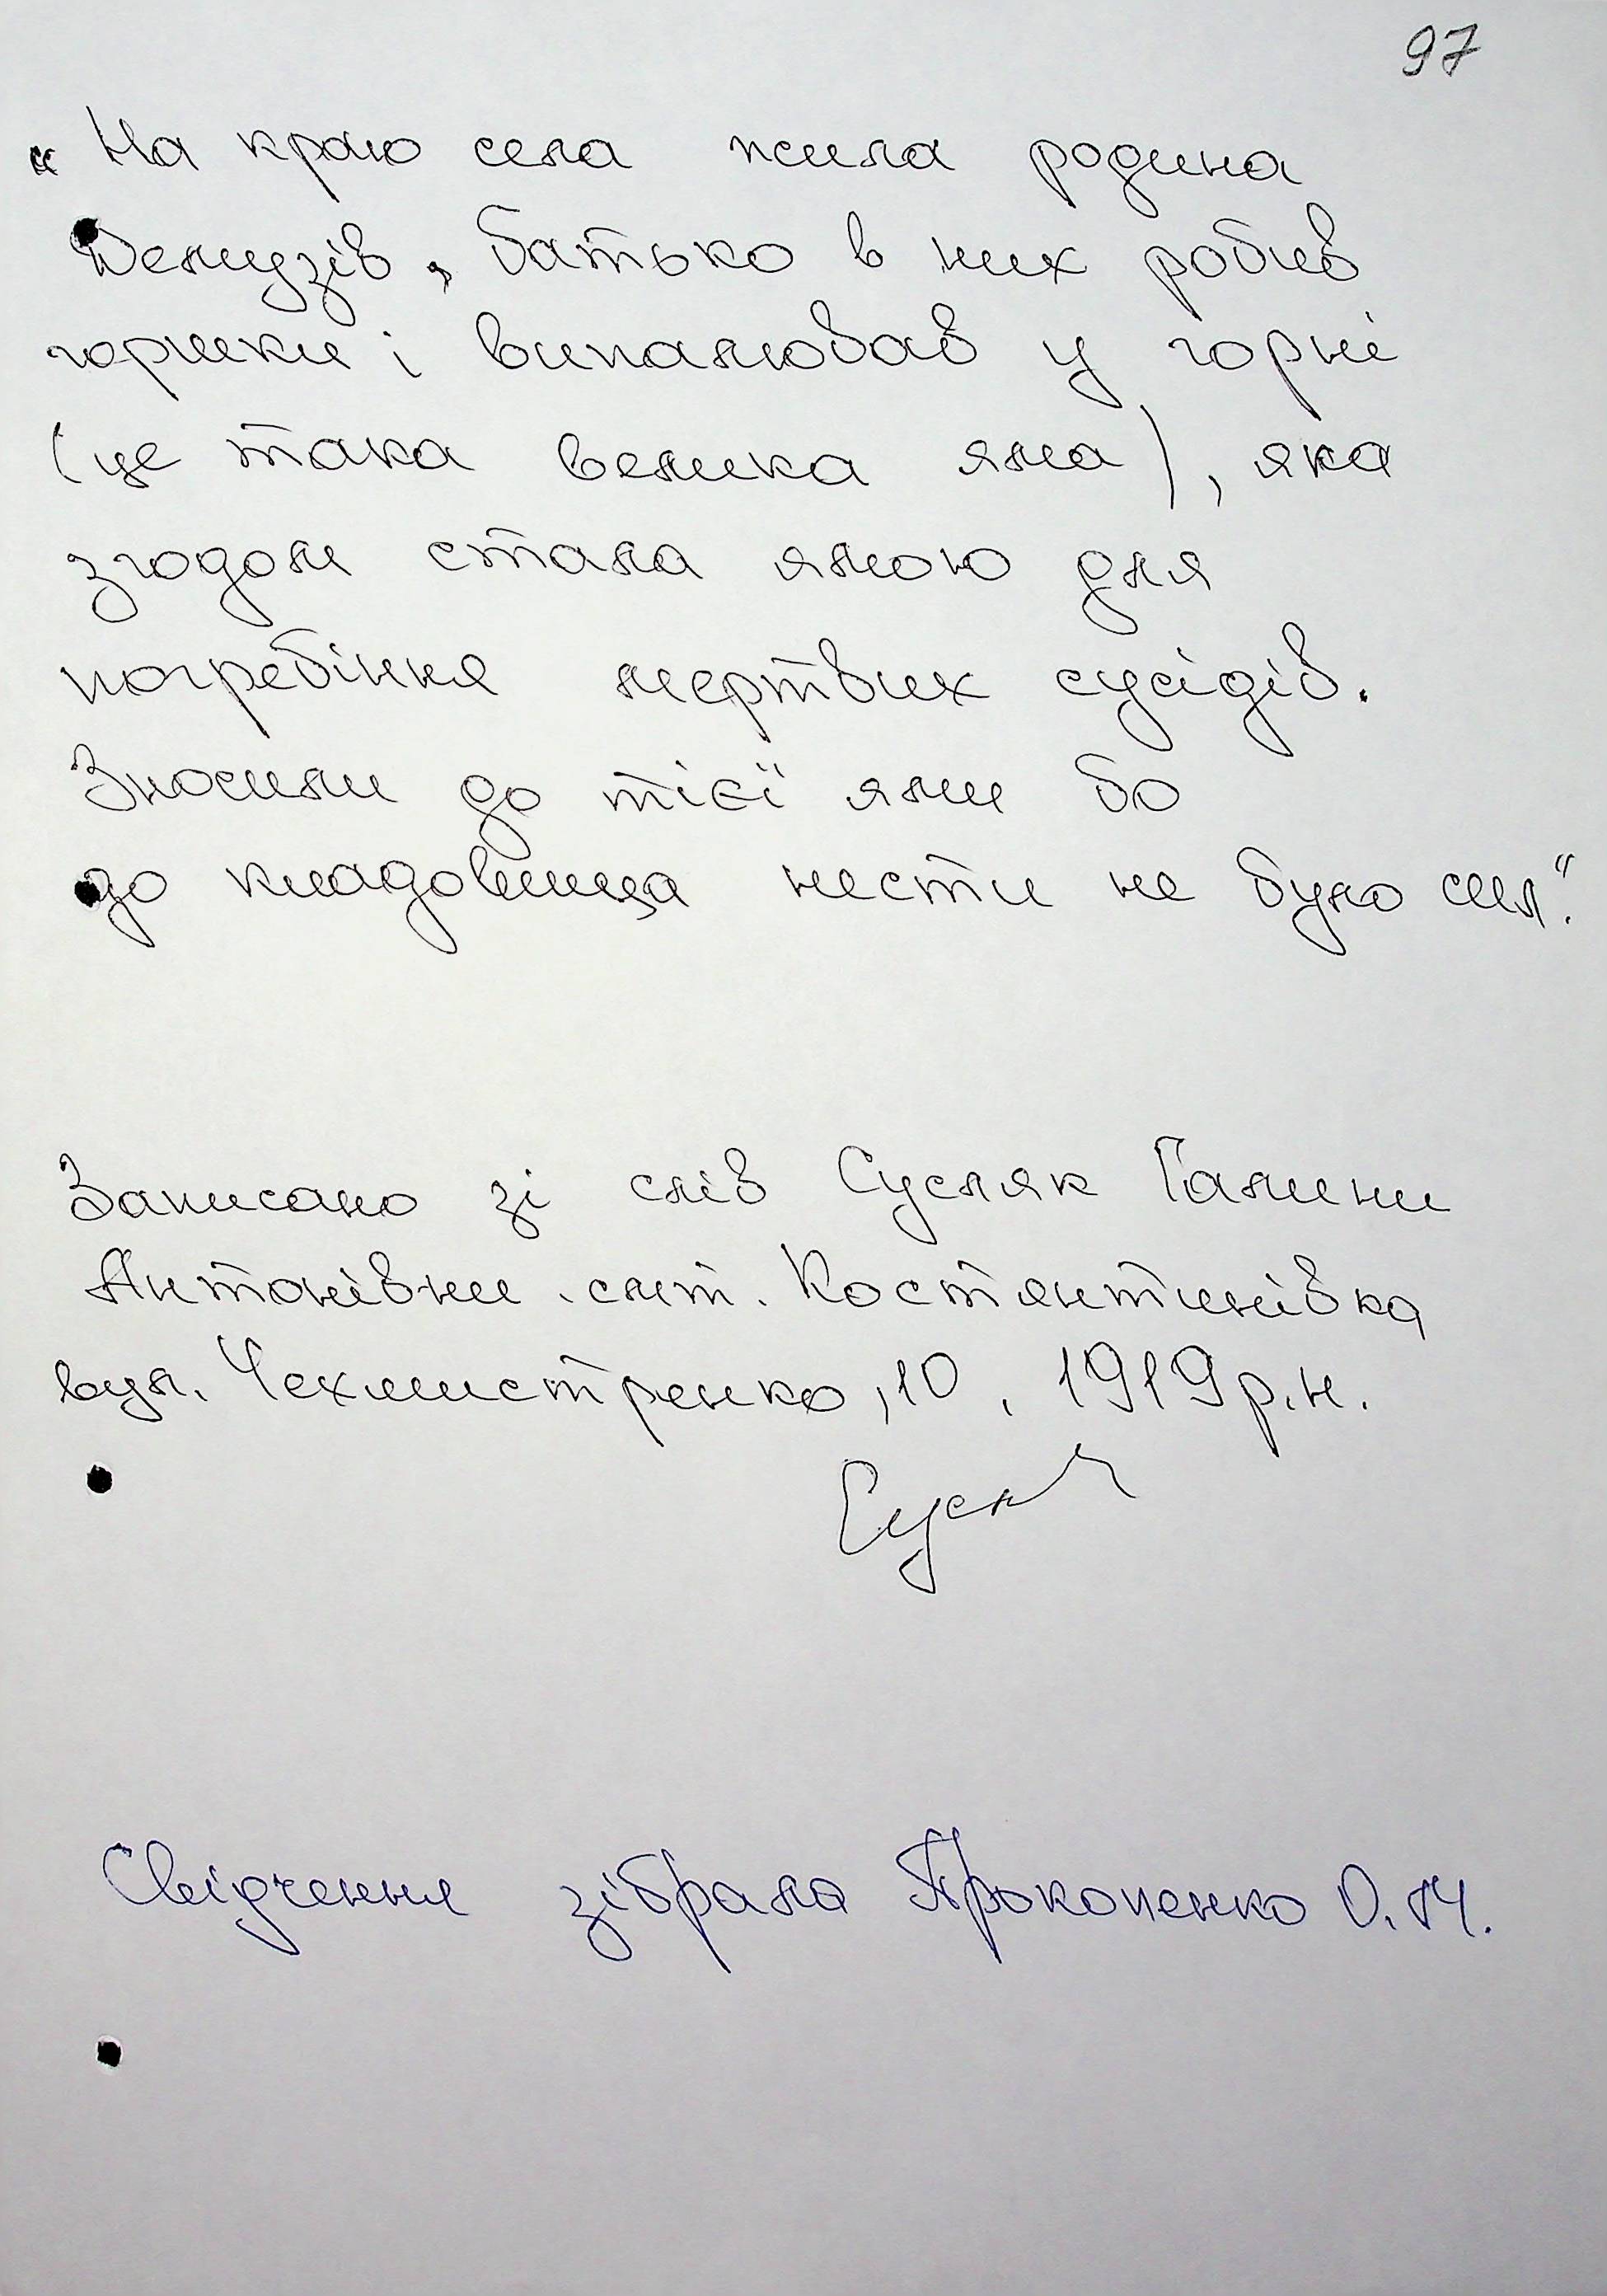 97
„ На краю села жила родина
Демидзів, батько в них робив
горшки і випалював у горні
(це така велика яма), яка
згодом стала ямою для
погребіння мертвих сусідів.
Зносили до тієї ями бо
до кладовища нести не було сил“.
Записано зі слів Сусляк Галини
Антонівни . смт. Костянтинівка
вул. Чехмистренко, 10, 1919 р.н.
Свідчення зібрала Прокопенко О.М.